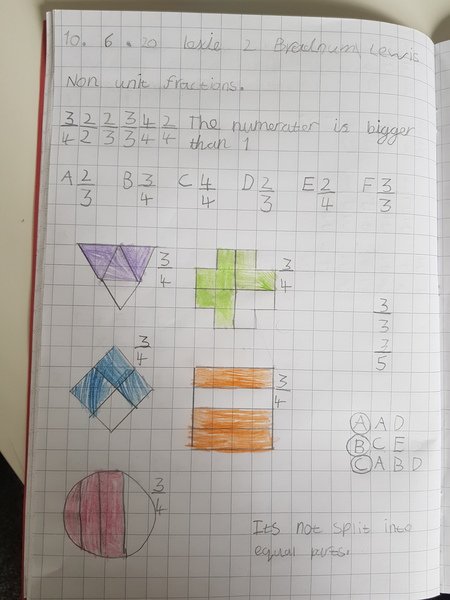 10. 6. 20 2 Bradnum Lewis
Non unit fractions.
3/4 2/2 2/3 3/3 4/4 2/4 The numerater is bigger
than 1
A 2/3 B 3/4 C 4/4 D 2/3 E 2/4 F 3/3
3/4 3/4
3/3
3/4
3/5
3/4
A A D
B C E
C A B D
3/4
Its not split into
equal parts.